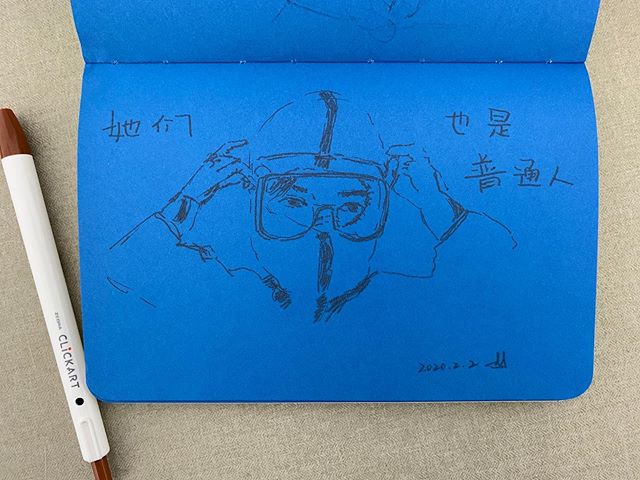 她们
也是
普通人
2020.2.2
ZEBRA
CLiCKART